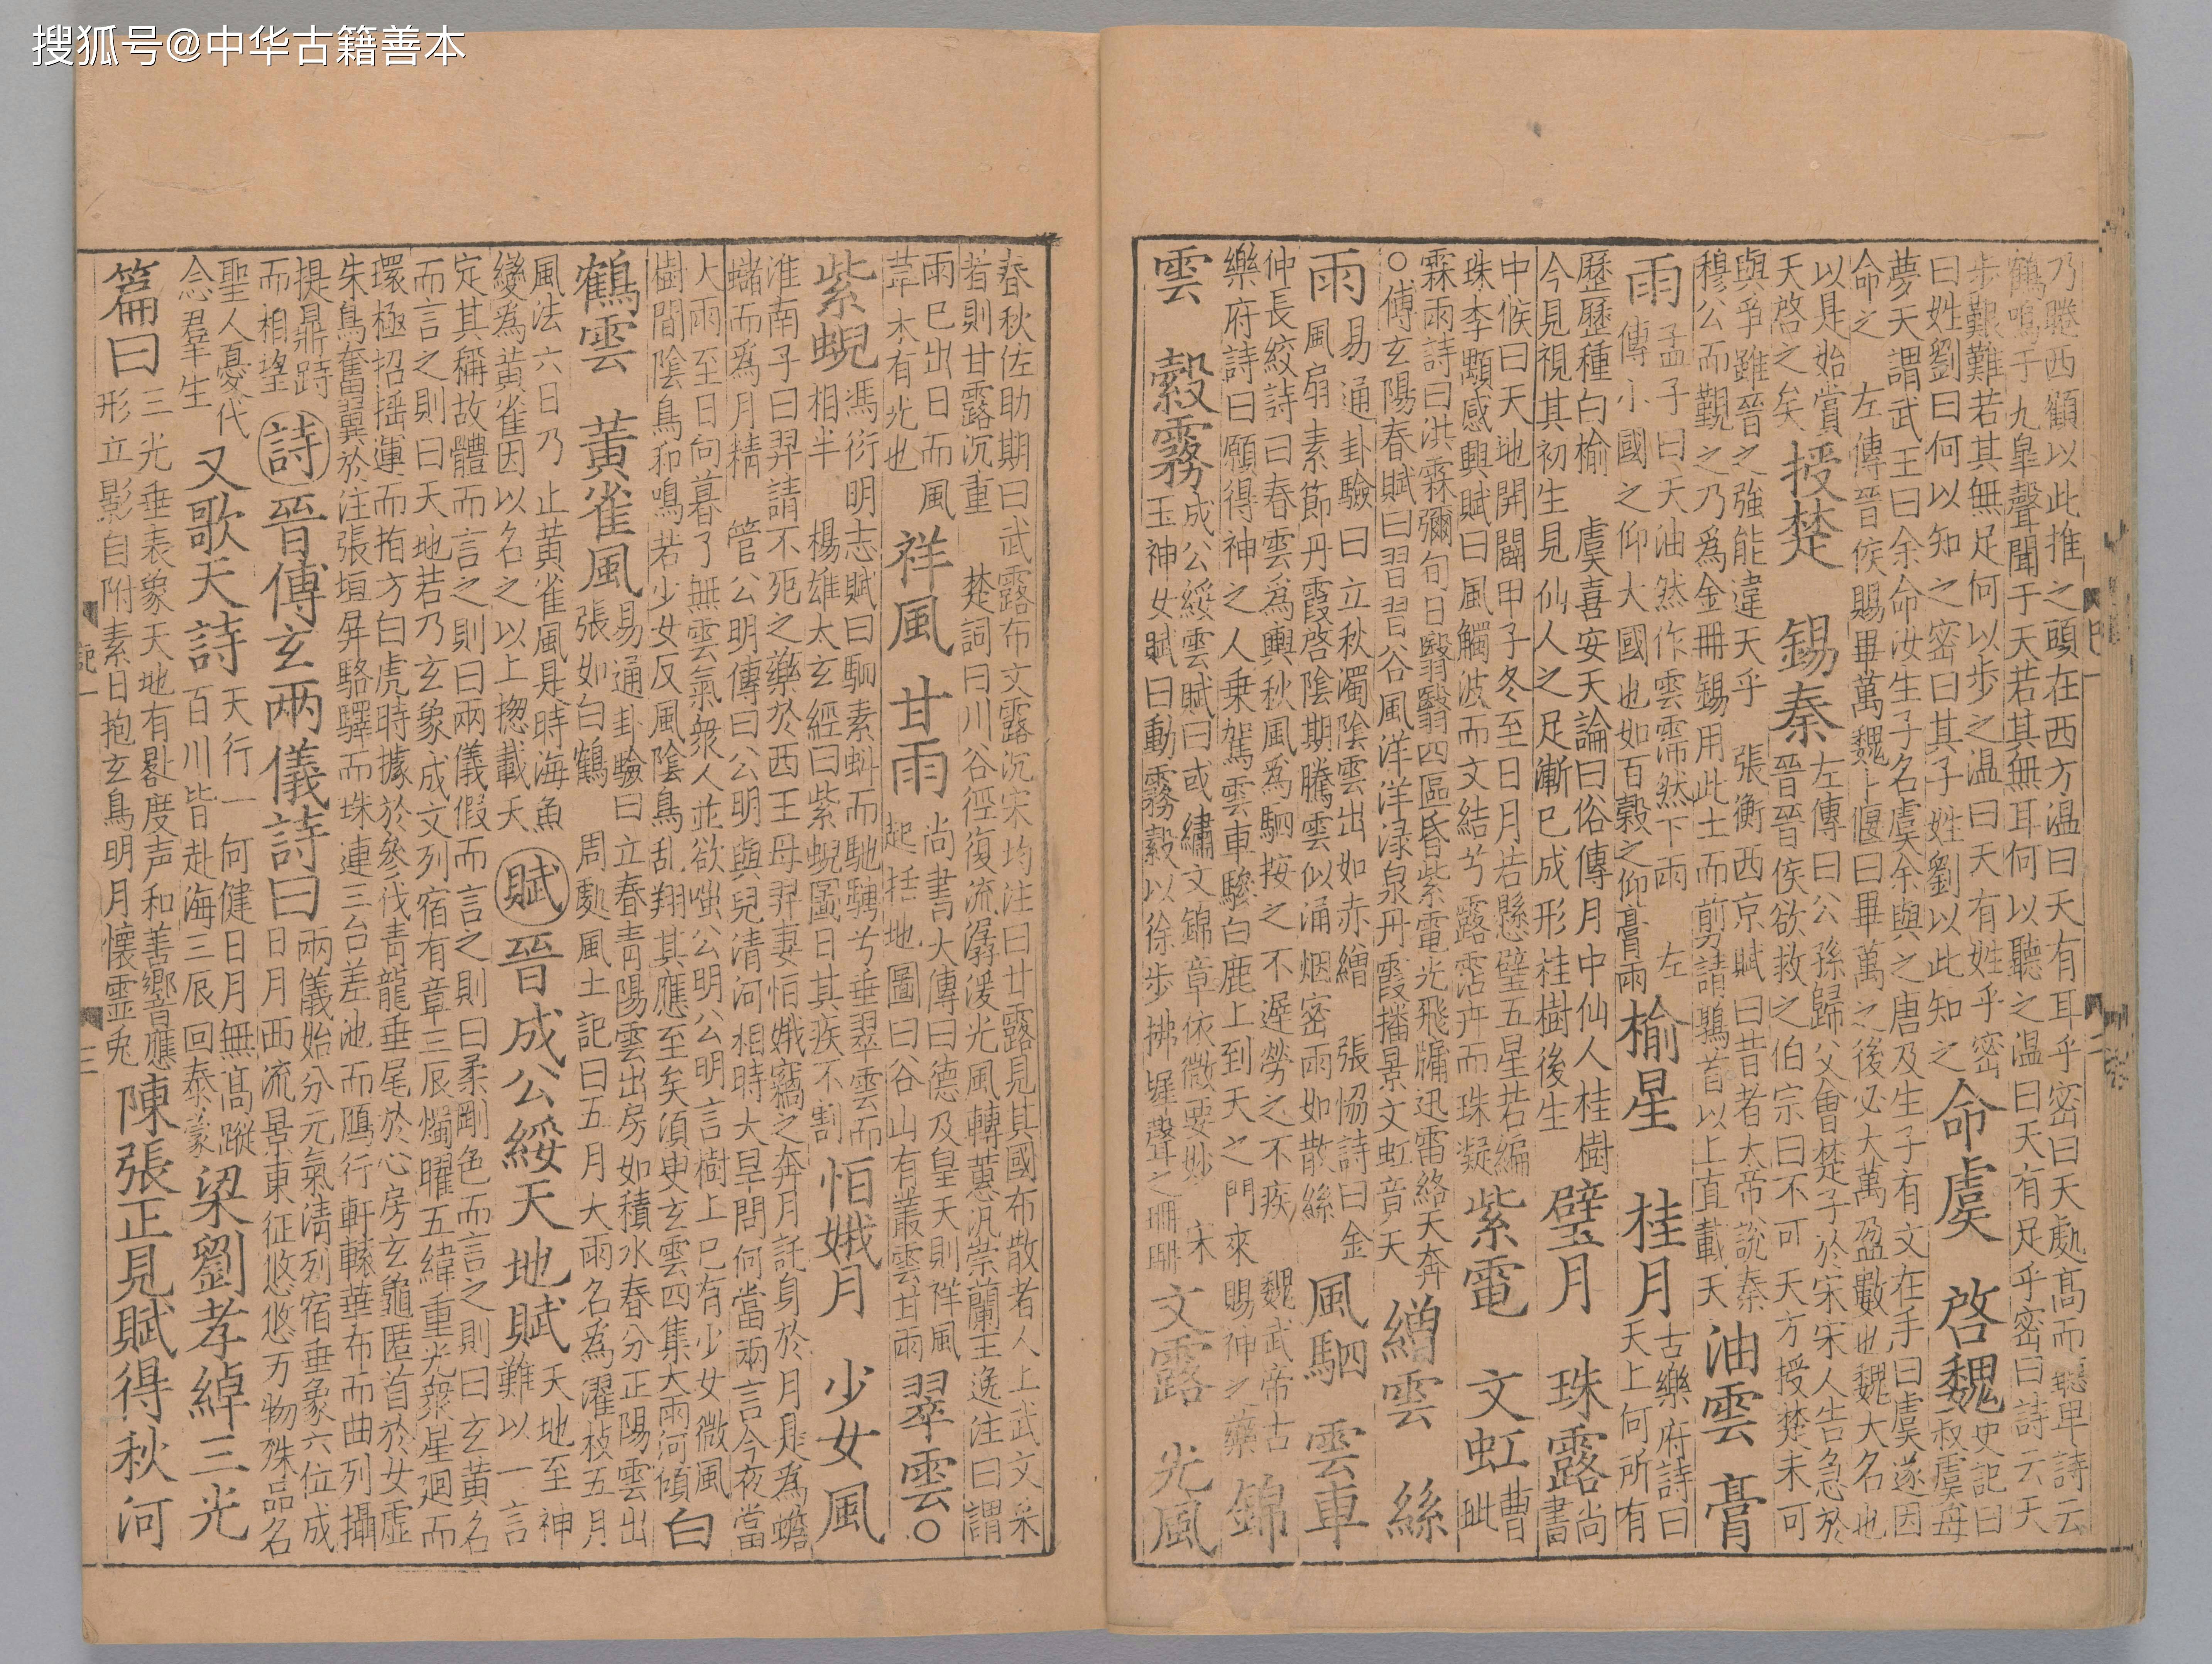 乃睠西顧以此推之頭在西方温曰天有耳乎密曰天處髙而聽卑詩云
鶴鳴于九臯聲聞于天若其無耳何以聽之温曰天有足乎密曰詩云天
步艱難若其無足何以步之温曰天有姓乎密曰姓劉曰何以知之密曰其子姓劉以此知之 命虞 啓魏 史記曰叔虞母
夢天謂武王曰余命汝生子名虞余與之唐及生子有文在手曰虞遂因
命之 左傳晉侯賜畢萬魏卜偃曰畢萬之後必大萬盈數也魏大名也
以是始賞天啓之矣 授楚 錫秦 左傳曰公孫歸父會楚子於宋宋人告急於晉晉侯欲救之伯宗曰不可天方授楚未可
與爭雖晉之強能違天乎 張衡西京賦曰昔者大帝說秦穆公而覲之乃爲金冊錫用此土而剪諸鶉首以上直載天 油雲 膏
雨 孟子曰天油然作雲霈然下雨 左傳小國之仰大國也如百穀之仰膏雨 榆星 桂月 古樂府詩曰天上何所有
歷歷種白榆 虞喜安天論曰俗傳月中仙人桂樹今見視其初生見仙人之足漸已成形桂樹後生 璧月 珠露 尚書
中候曰天地開闢甲子冬至日月若懸璧五星若編珠李顒感興賦曰風觸波而文結兮露霑卉而珠凝 紫電 文虹 曹毗
霖雨詩曰洪霖彌旬日翳翳四區昏紫電光飛牖迅雷絡天奔○傅玄陽春賦曰習習谷風洋洋渌泉丹霞播景文虹音天 繒雲 絲
雨 易通卦驗曰立秋濁陰雲出如赤繒 張恊詩曰金風扇素節丹霞啓陰期騰雲似涌烟密雨如散絲 風駟 雲車
仲長統詩曰春雲爲輿秋風爲駟按之不遲勞之不疾 魏武帝古樂府詩曰願得神之人乗駕雲車驂白鹿上到天之門來賜神之藥 錦
雲 縠霧 成公綏雲賦曰或繡文錦章依微要妙 宋玉神女賦曰動霧縠以徐步拂墀聲之珊珊 文露 光風
春秋佐助期曰武露布文露沉宋均注曰甘露見其國布散者人上武文采
者則甘露沉重 楚詞曰川谷徑復流潺湲光風轉蕙汎崇蘭王逸注曰謂
雨已出日而風草木有光也 祥風 甘雨 尚書大傳曰德及皇天則祥風起括地圖曰谷山有叢雲甘雨 翠雲○
紫蜺 馮衍明志賦曰駟素虯而馳騁兮垂翠雲而相半 楊雄太玄經曰紫蜺圖日其疾不割 姮娥月 少女風
淮南子曰羿請不死之藥於西王母羿妻姮娥竊之奔月託身於月是爲蟾
蠩而爲月精 管公明傳曰公明與兒清河相時大旱問何當雨言今夜當
大雨至日向暮了無雲氣衆人並欲嗤公明公明言樹上已有少女微風樹間陰鳥和鳴若少女反風陰鳥乱翔其應至矣須臾玄雲四集大雨河傾 白
鶴雲 黃雀風 易通卦驗曰立春青陽雲出房如積水春分正陽雲出張如白鶴 周處風土記曰五月大雨名爲濯枝五月
風法六日乃止黃雀風是時海魚變爲黃雀因以名之以上揔載天 賦 晉成公綏天地賦 天地至神難以一言
定其稱故體而言之則曰兩儀假而言之則曰柔剛色而言之則曰玄黃名
而言之則曰天地若乃玄象成文列宿有章三辰燭曜五緯重光衆星迴而
環極招揺運而指方白虎時據於參伐青龍垂尾於心房玄龜匿首於女虛
朱鳥奮翼於注張垣屏駱驛而珠連三台差池而鴈行軒轅華布而曲列攝
提鼎跱而相望 詩 晉傅玄兩儀詩曰 兩儀始分元氣清列宿垂象六位成日月西流景東征悠悠万物殊品名
聖人憂代念羣生 又歌天詩 天行一何健日月無髙蹤百川皆赴海三辰回泰蒙 梁劉孝綽三光
篇曰 三光垂表象天地有晷度声和善響應形立影自附素日抱玄鳥明月懷靈兎 陳張正見賦得秋河
記一
三
搜狐号@中华古籍善本